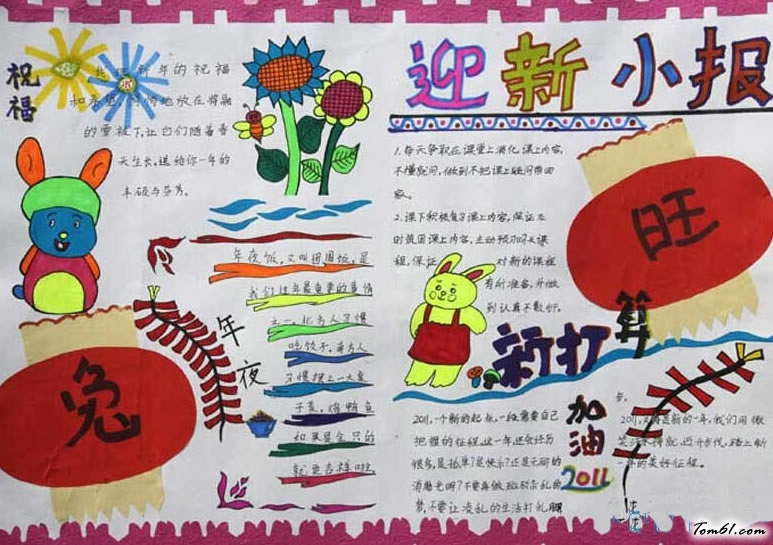 迎新小报
祝福
新年的祝福
地放在将融
的雪被下,让它们随着春
天生长,送给你一年的
年夜
年夜饭,又叫团圆饭,是
我们过年最重要的事情
之一,北方人习惯
吃饺子,南方人
习惯摆上一大桌
子菜,鸡鸭鱼
就更吉祥啦
兔
1.每天争取在课堂上消化课上内容,
不懂就问,做到不把课上疑问带回
家。
2.课下积极复习课上内容,保证及
时巩固课上内容,主动预习明天课
程,保证
对新的课程
有所准备,并做
到认真不敷衍。
旺
新打算
加油
2011
2011,一个新的起点,一段需要自己
把握的征程,这一年还会经历
很多,是孤单?是快乐?还是无聊的
消磨光阴?不要再做
不要让凌乱的生活打乱脚
步。
的一年,我们用微
迈开步伐,踏上新
一年的美好征程。
Tom61.com